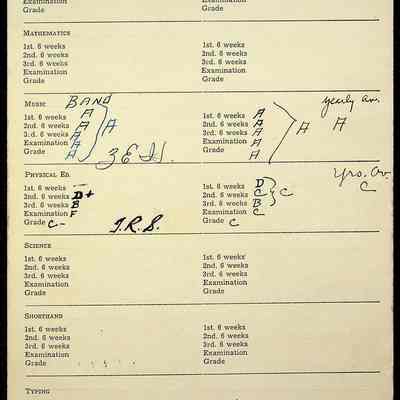 Examination
Grade
Grade
MATHEMATICS
1st. 6 weeks 1st. 6 weeks
2nd. 6 weeks 2nd. 6 weeks
3rd. 6 weeks 3rd. 6 weeks
Examination Examination
Grade Grade
MUSIC BAND yearly av.
1st. 6 weeks A 1st. 6 weeks A
2nd. 6 weeks A A 2nd. 6 weeks A A A
3.d. 6 weeks A 3rd. 6 weeks A
Examination A Examination A
Grade A Grade A
PHYSICAL ED. Yrs. Av.
1st. 6 weeks — 1st. 6 weeks D C
2nd. 6 weeks D+ 2nd. 6 weeks C C
3rd. 6 weeks B 3rd. 6 weeks B
Examination F Examination C
Grade C- J.R.S. Grade C
SCIENCE
1st. 6 weeks 1st. 6 weeks
2nd. 6 weeks 2nd. 6 weeks
3rd. 6 weeks 3rd. 6 weeks
Examination Examination
Grade Grade
SHORTHAND
1st. 6 weeks 1st. 6 weeks
2nd. 6 weeks 2nd. 6 weeks
3rd. 6 weeks 3rd. 6 weeks
Examination Examination
Grade Grade
TYPING